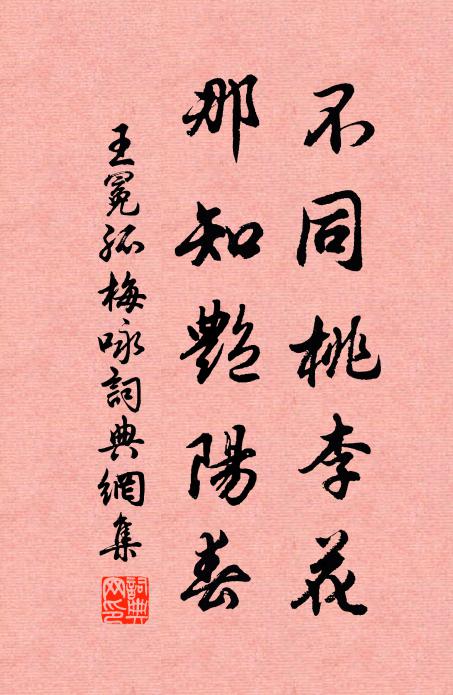 不同桃李花
那知艷陽春
王冕孤梅咏詞典網集
詞典网印